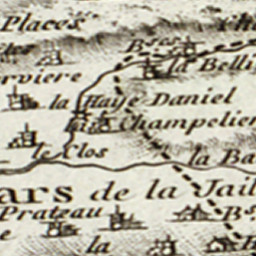 Places
la Belli
rviere
la Haye-Daniel
Champelier
le Clos
la Ba
ars de la Jail
Prateau
e
la